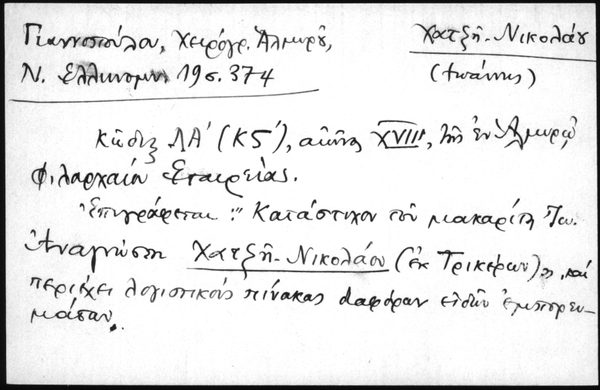 Γιαννοπούλου, Χειρόγρ. Ἁλμυροῦ,
Χατζῆ-Νικολάου
Ν. Ἑλληνομν. 19 σ. 374
(Ἰωάννης)
Κῶδιξ ΛΑ΄ (ΚΣ΄), αἰῶνος XVIII, τῆς ἐν Ἁλμυρῷ
Φιλαρχαίου Ἑταιρείας.
Ἐπιγράφεται: "Κατάστιχον τοῦ μακαρίτη Ἰω.
Ἀναγνώστη Χατζῆ-Νικολάου (ἐκ Τρικέρων)", καὶ
περιέχει λογιστικοὺς πίνακας διαφόρων εἰδῶν ἐμπορευ-
μάτων.